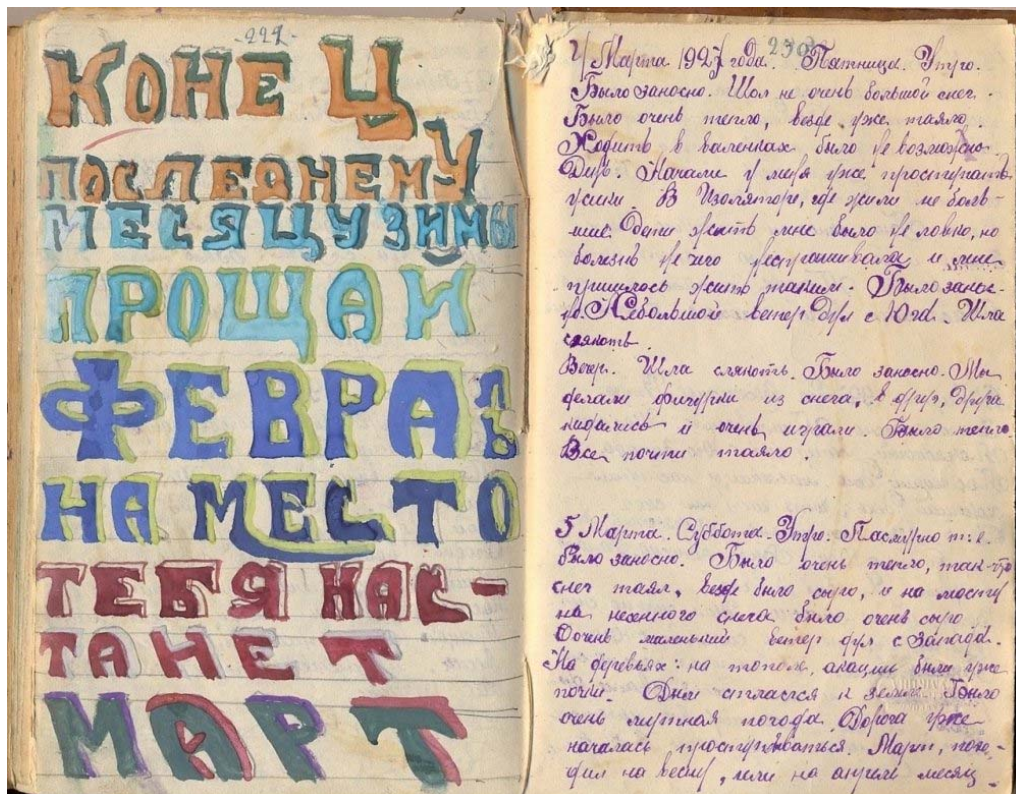 -229-
КОНЕЦ
ПОСЛЕДНЕМУ
МЕСЯЦУ ЗИМЫ
ПРОЩАЙ
ФЕВРАЛЬ
НА МЕСТО
ТЕБЯ НАС-
ТАНЕТ
МАРТ
230
4 Марта 1927 года. Пятница. Утро.
Было заносно. Шол не очень большой снег.
Было очень тепло, везде уже таяло.
Ходить в валенках было не возможно.
Начали у меня уже простирать
В Изоляторе, где жили не боль-
ные. Дати жить мне было не ловко, но
болезнь не чего и мне
пришлось жить таким. Было занос-
но. Небольшой ветер дул с Юга. Шла
слякоть.
Вечер. Шла слякоть. Было заносно. Мы
делали фигурки из снега, в друг, друга
кидались и очень играли. Было тепло
Все почти таяло.
5 Марта. Суббота. Утро. Пасмурно т.е.
было заносно. Было очень тепло, так-что
снег таял, везде было сыро, и на мосту
на снега было очень сыро
Очень маленький ветер дул с Запада.
На деревьях: на тополе, акации были уже
почки. Дым стлался к земле. Было
очень мутная погода. Дорога уже
началась Март, похо-
дил на весну, или на апрель месяц.